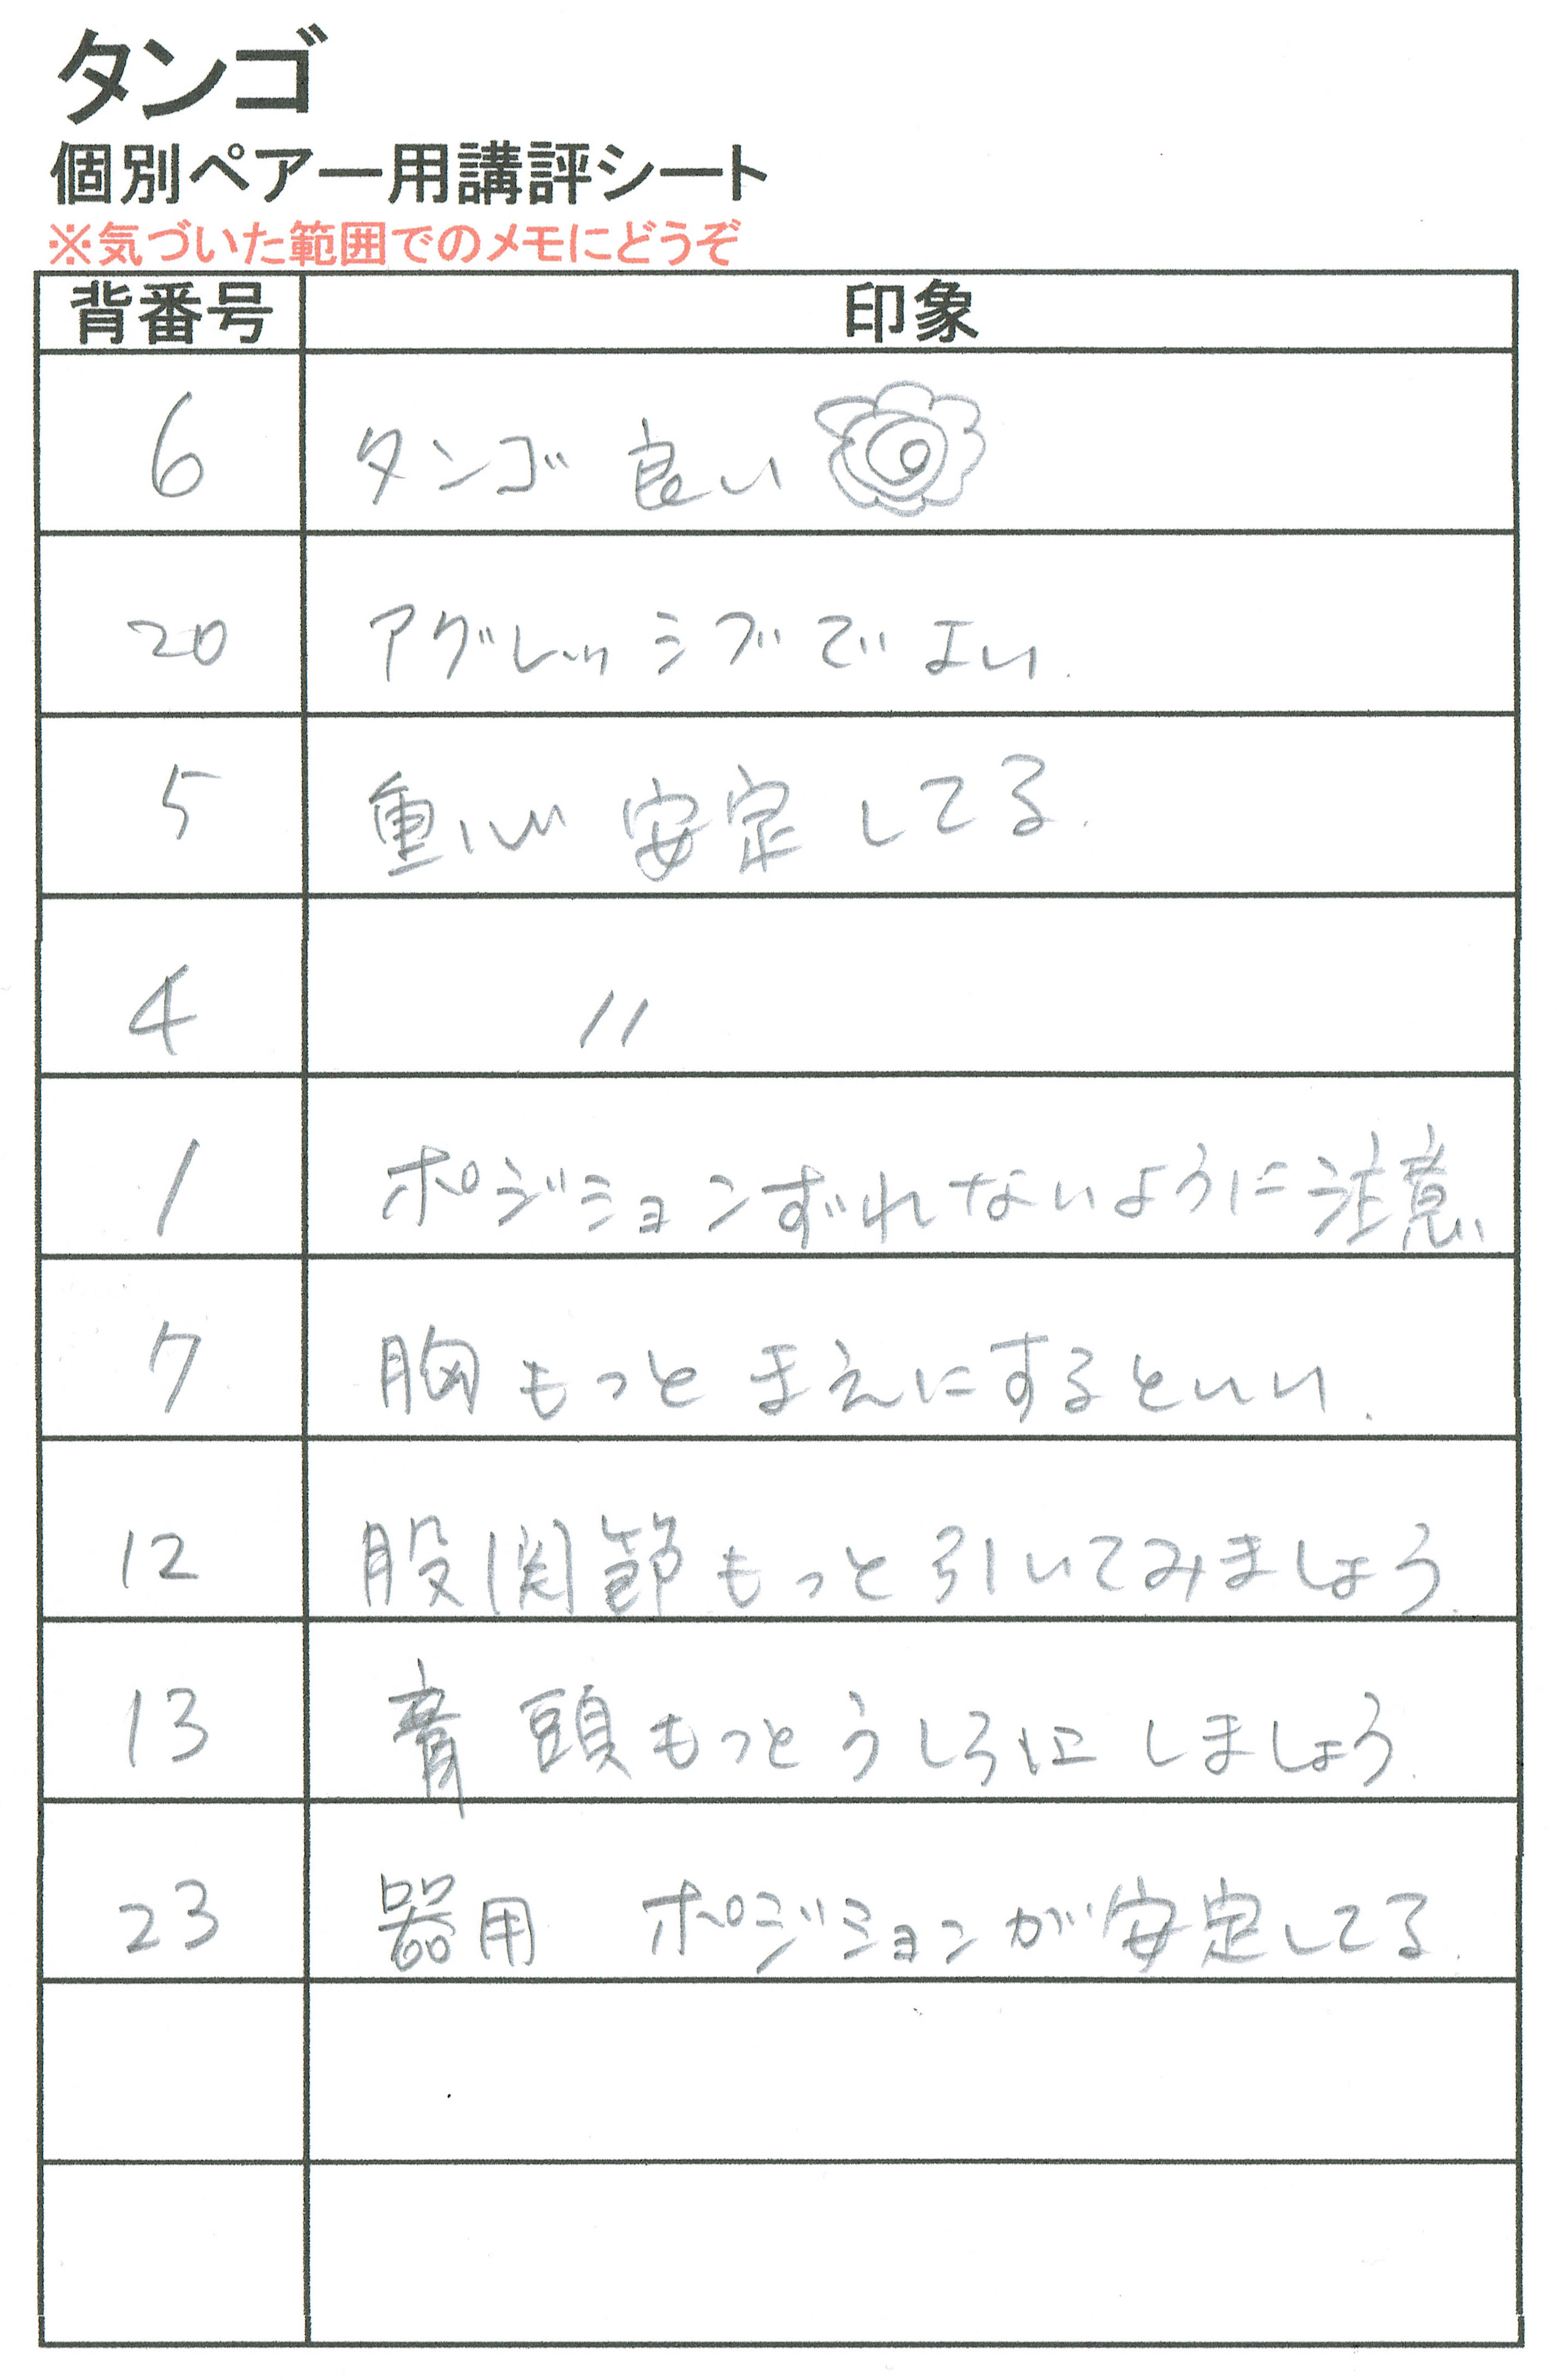 タンゴ
個別ペアー用講評シート
※気づいた範囲でのメモにどうぞ
背番号 印象
6 タンゴ 良い
20 アグレッシブでよい.
5 重心 安定してる.
4 〃
1 ポジションずれないように注意
7 胸もっとまえにするといい.
12 股関節もっと引いてみましょう.
13 頭もっとうしろにしましょう.
23 器用 ポジションが安定してる.